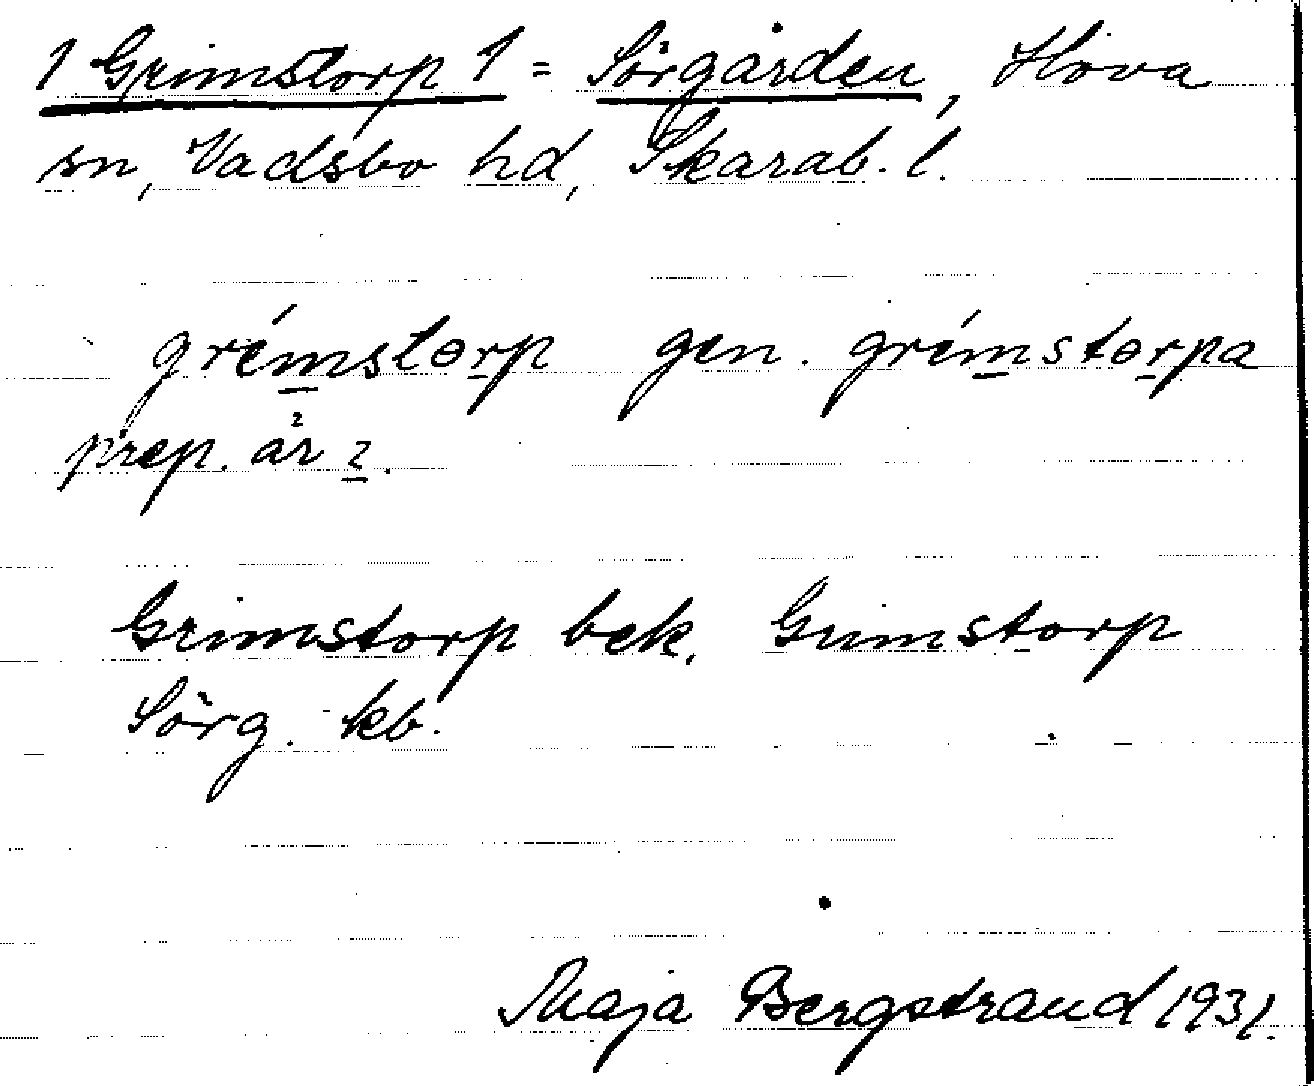 1 Grimstorp 1 = Sörgården, Hova
sn, Vadsbo hd, Skarab. l.
grémstɵrp gen. grémstɵrpa
prep. år 2.
Grimstorp bek. Grimstorp
Sörg. kb.
Maja Bergstrand 1931.